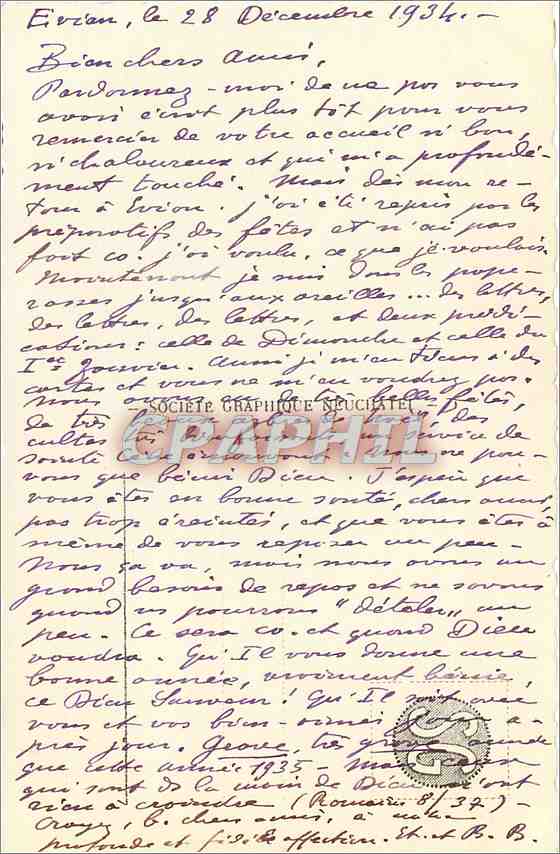 Evian, le 28 Décembre 1934. -
Bien chers amis,
Pardonnez-moi de ne pas vous
avoir écrit plus tôt pour vous
remercier de votre accueil si bon,
si chaloureux et qui m'a profondé-
ment touché. Mais dès mon re-
tour à Evian, j'ai été repris par les
préparatifs des fêtes et n'ai pas
fait co. j'ai voulu, ce que je voulais.
Maintenant je suis dans les pape-
rasses jusqu'aux oreilles... des lettres,
des lettres, des lettres, et deux prédi-
cations: celle de Dimanche et celle du
1er Janvier. Aussi je m'en tiens à des
cartes et vous ne m'en voudrez pas.
Nous avons eu de belles fêtes,
de très des
SOCIÉTÉ GRAPHIQUE NEUCHATEL
cultes très service de
GRAPHIL
sainte Nous ne pou-
vons que bénir Dieu. J'espère que
vous êtes en bonne santé, chers amis,
pas trop éreintés, et que vous êtes à
même de vous reposer un peu -
Nous ça va, mais nous avons un
grand besoin de repos et ne savons
quand ns pourrons "dételer" un
peu. Ce sera co. et quand Dieu
voudra. Qu'Il vous donne une
bonne année, vraiment bénie,
ce Dieu Sauveur! Qu'Il soit avec
vous et vos bien-aimés jour a-
près jour. Grave, très grave année
que cette année 1935 - Mais ceux
qui sont ds la main de Dieu n'ont
GS
rien à craindre (Romains 8/37) -
Croyez, b. chers amis, à notre
profonde et fidèle affection. Et. et B. B.